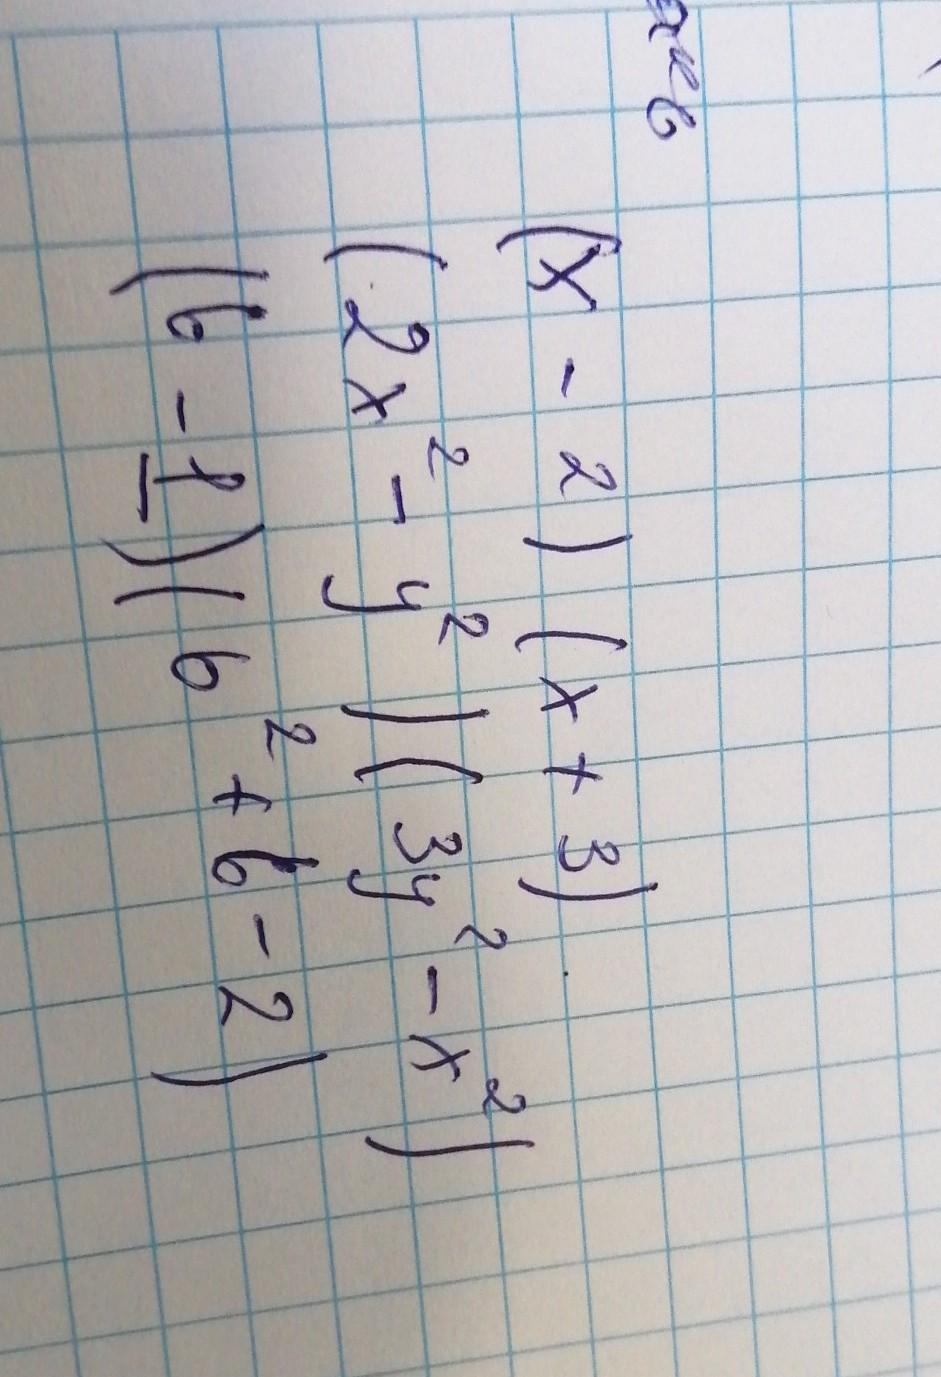 (x - 2)(x + 3)
(2x² - y²)(3y² - x²)
(b - 1)(b² + b - 2)